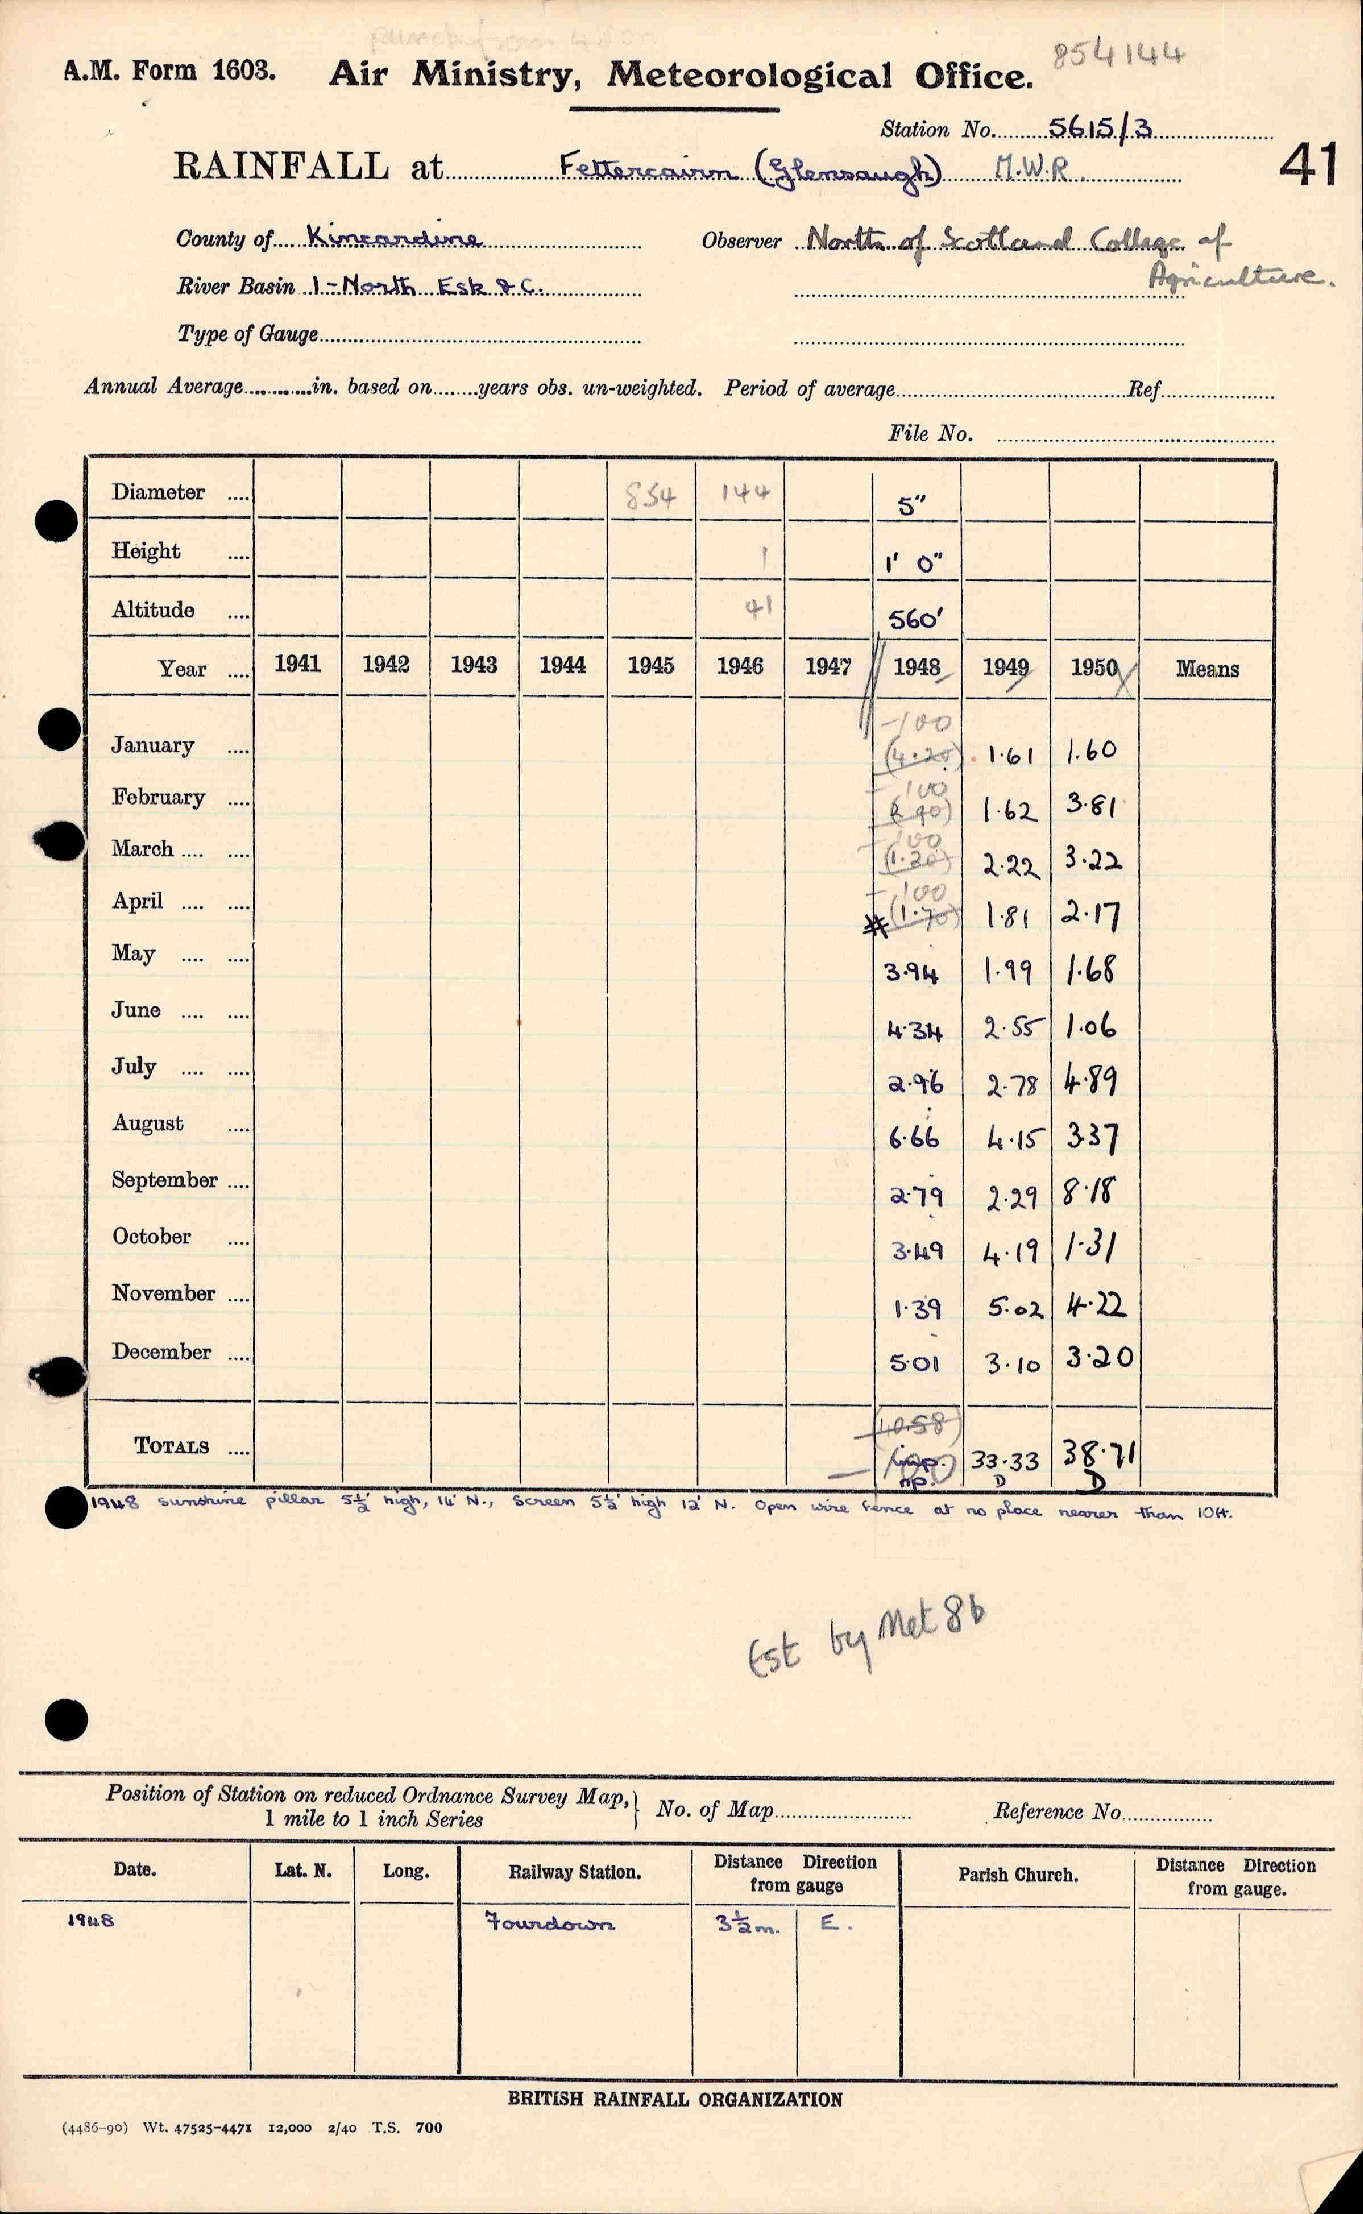 854144
A.M. Form 1603. Air Ministry, Meteorological Office.
Station No. 5615/3
RAINFALL at Fettercairn (Glensaugh) M.W.R. 41
County of Kincardine Observer North of Scotland College of
Agriculture.
River Basin 1-North Esk &C.
Type of Gauge
Annual Average in. based on years obs. un-weighted. Period of average Ref
File No.
Diameter .... 854 144 5"
Height .... 1 1' 0"
Altitude .... 41 560'
Year .... 1941 1942 1943 1944 1945 1946 1947 1948 1949 1950 Means
-100
January .... (4.20) 1.61 1.60
-100
February .... 1.62 3.81
-100
March .... .... (1.20) 2.22 3.22
-100
April .... .... (1.70) 1.81 2.17
May .... .... 3.94 1.99 1.68
June .... .... 4.34 2.55 1.06
July .... .... 2.96 2.78 4.89
August .... 6.66 4.15 3.37
September .... 2.79 2.29 8.18
October .... 3.49 4.19 1.31
November .... 1.39 5.02 4.22
December .... 5.01 3.10 3.20
(40.58)
TOTALS .... -100 33.33 38.71
np. D D
1948 sunshine pillar 5½' high, 14' N., Screen 5½' high 12' N. Open wire fence at no place nearer than 10ft.
Est by Met 8b
Position of Station on reduced Ordnance Survey Map, } No. of Map Reference No.
1 mile to 1 inch Series
Date. Lat. N. Long. Railway Station. Distance Direction from gauge Parish Church. Distance Direction from gauge.
1948 Fourdown 3½m. E.
BRITISH RAINFALL ORGANIZATION
(4486-90) Wt. 47525-4471 12,000 2/40 T.S. 700